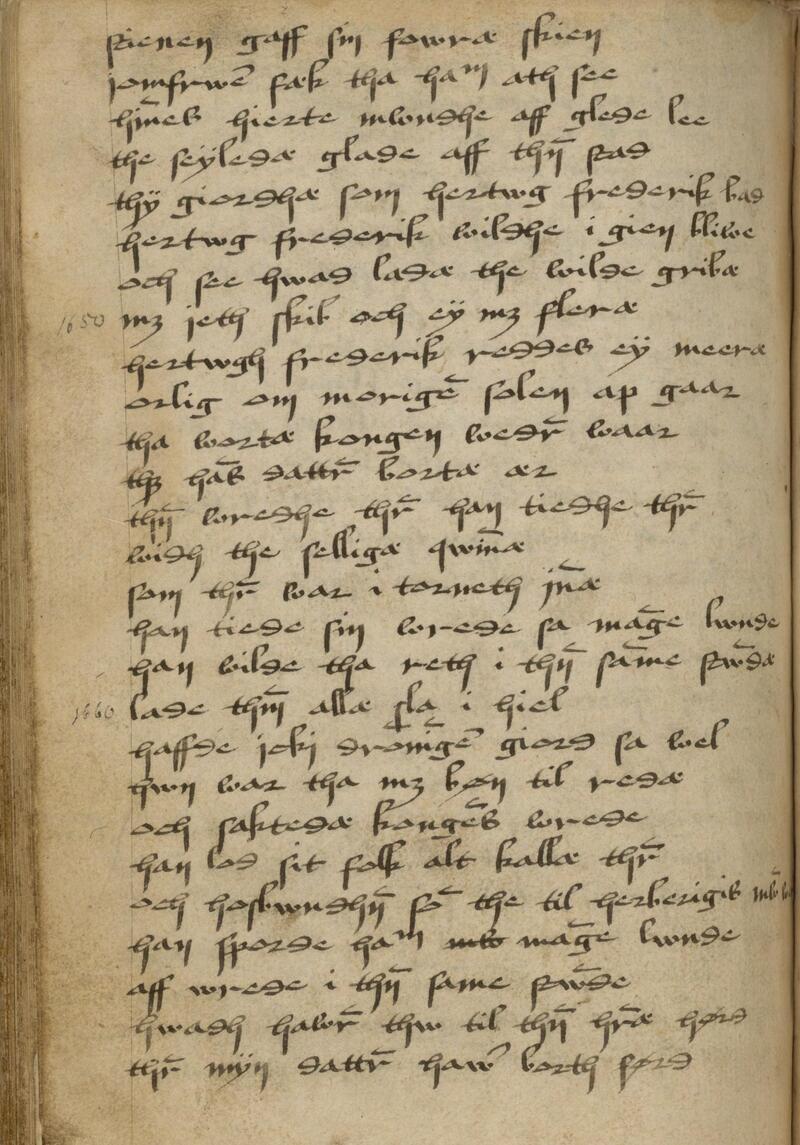 stenen gaff sin fowræ skien
jomfrwē fæk tha haᵐ ath see
hm̄es hierte mwndhe aff glede lee
the seyledæ glade aff thn̄ stad
thÿ giordhæ som hertwg frederik bad
hertwg frederik wildhe i gien bliwe
och see hwad ladæ the wilde gribæ
1650 mꝫ jeth skib och eÿ mꝫ fleræ
hertwgh frederik reddes eÿ meeræ
arlig om morigē solen ap gaar
tha wortæ kongen wedr̄ waar
hās dattr̄ bortæ ær
thn̄ wredhe thr̄ han tiedhe thr̄
widh the selligæ qwin̄æ
som thr̄ war i torneth jn̄æ
han tiede sin wrede sa māge lwnde
han wilde tha reth i thn̄ sāme stw̄dæ
1660 lade thm̄ allæ sla i hiel
haffde icki dronīgē giord sa wel
hwn war tha mꝫ bøn til redæ
och saktedæ kongēs wrede
han lod sit folk alt kallæ thr̄
och hosbwndhn̄ sō the til herberigis
han sporde haᵐ māge lwnde
aff wrede i thn̄ same stw̄de
hwadh hawr̄ thw til thn̄ hr̄æ hørd
thr̄ mÿn dattr̄ haw̄ borth førd